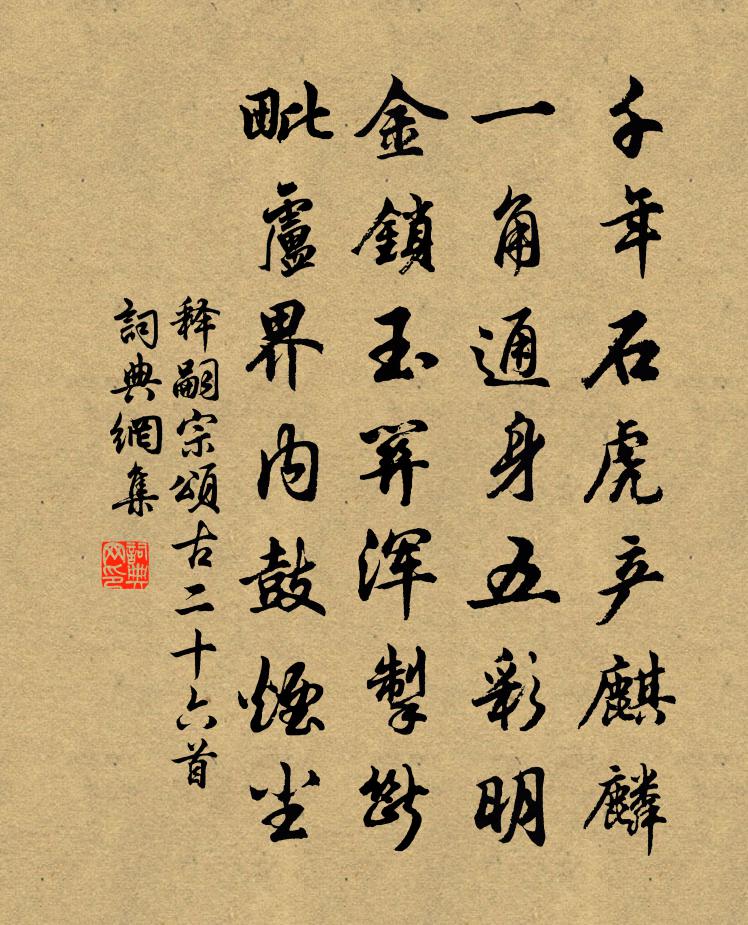 千年石虎产麒麟
一角通身五彩明
金鎖玉関浑掣断
毗盧界内鼓煙尘
释嗣宗頌古二十六首
詞典網集
詞典网印